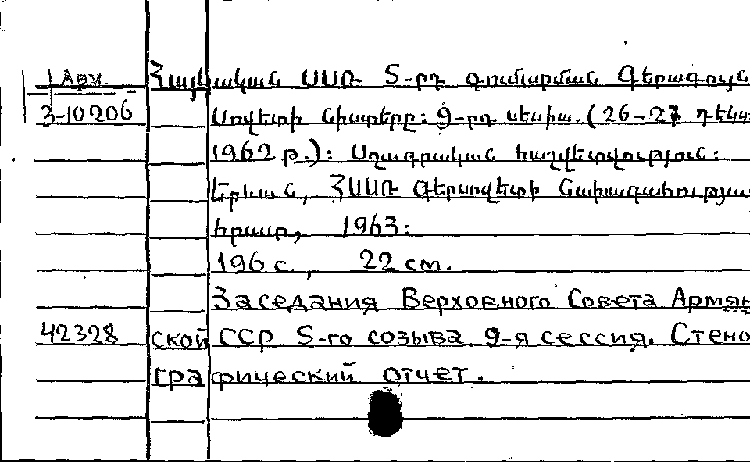 Арм. Հայկական ՍՍՌ 5-րդ գումարման Գերագույն
3-10206 Սովետի նիստերը: 9-րդ սեսիա. (26-27 դեկտ.
1962 թ.): Սղագրական հաշվետվություն:
Երևան, ՀՍՍՌ Գերսովետի նախագահության
հրատ, 1963:
196 с., 22 см.
Заседания Верховного Совета Армян
42328 ской ССР 5-го созыва. 9-я сессия. Стено
графический отчет.